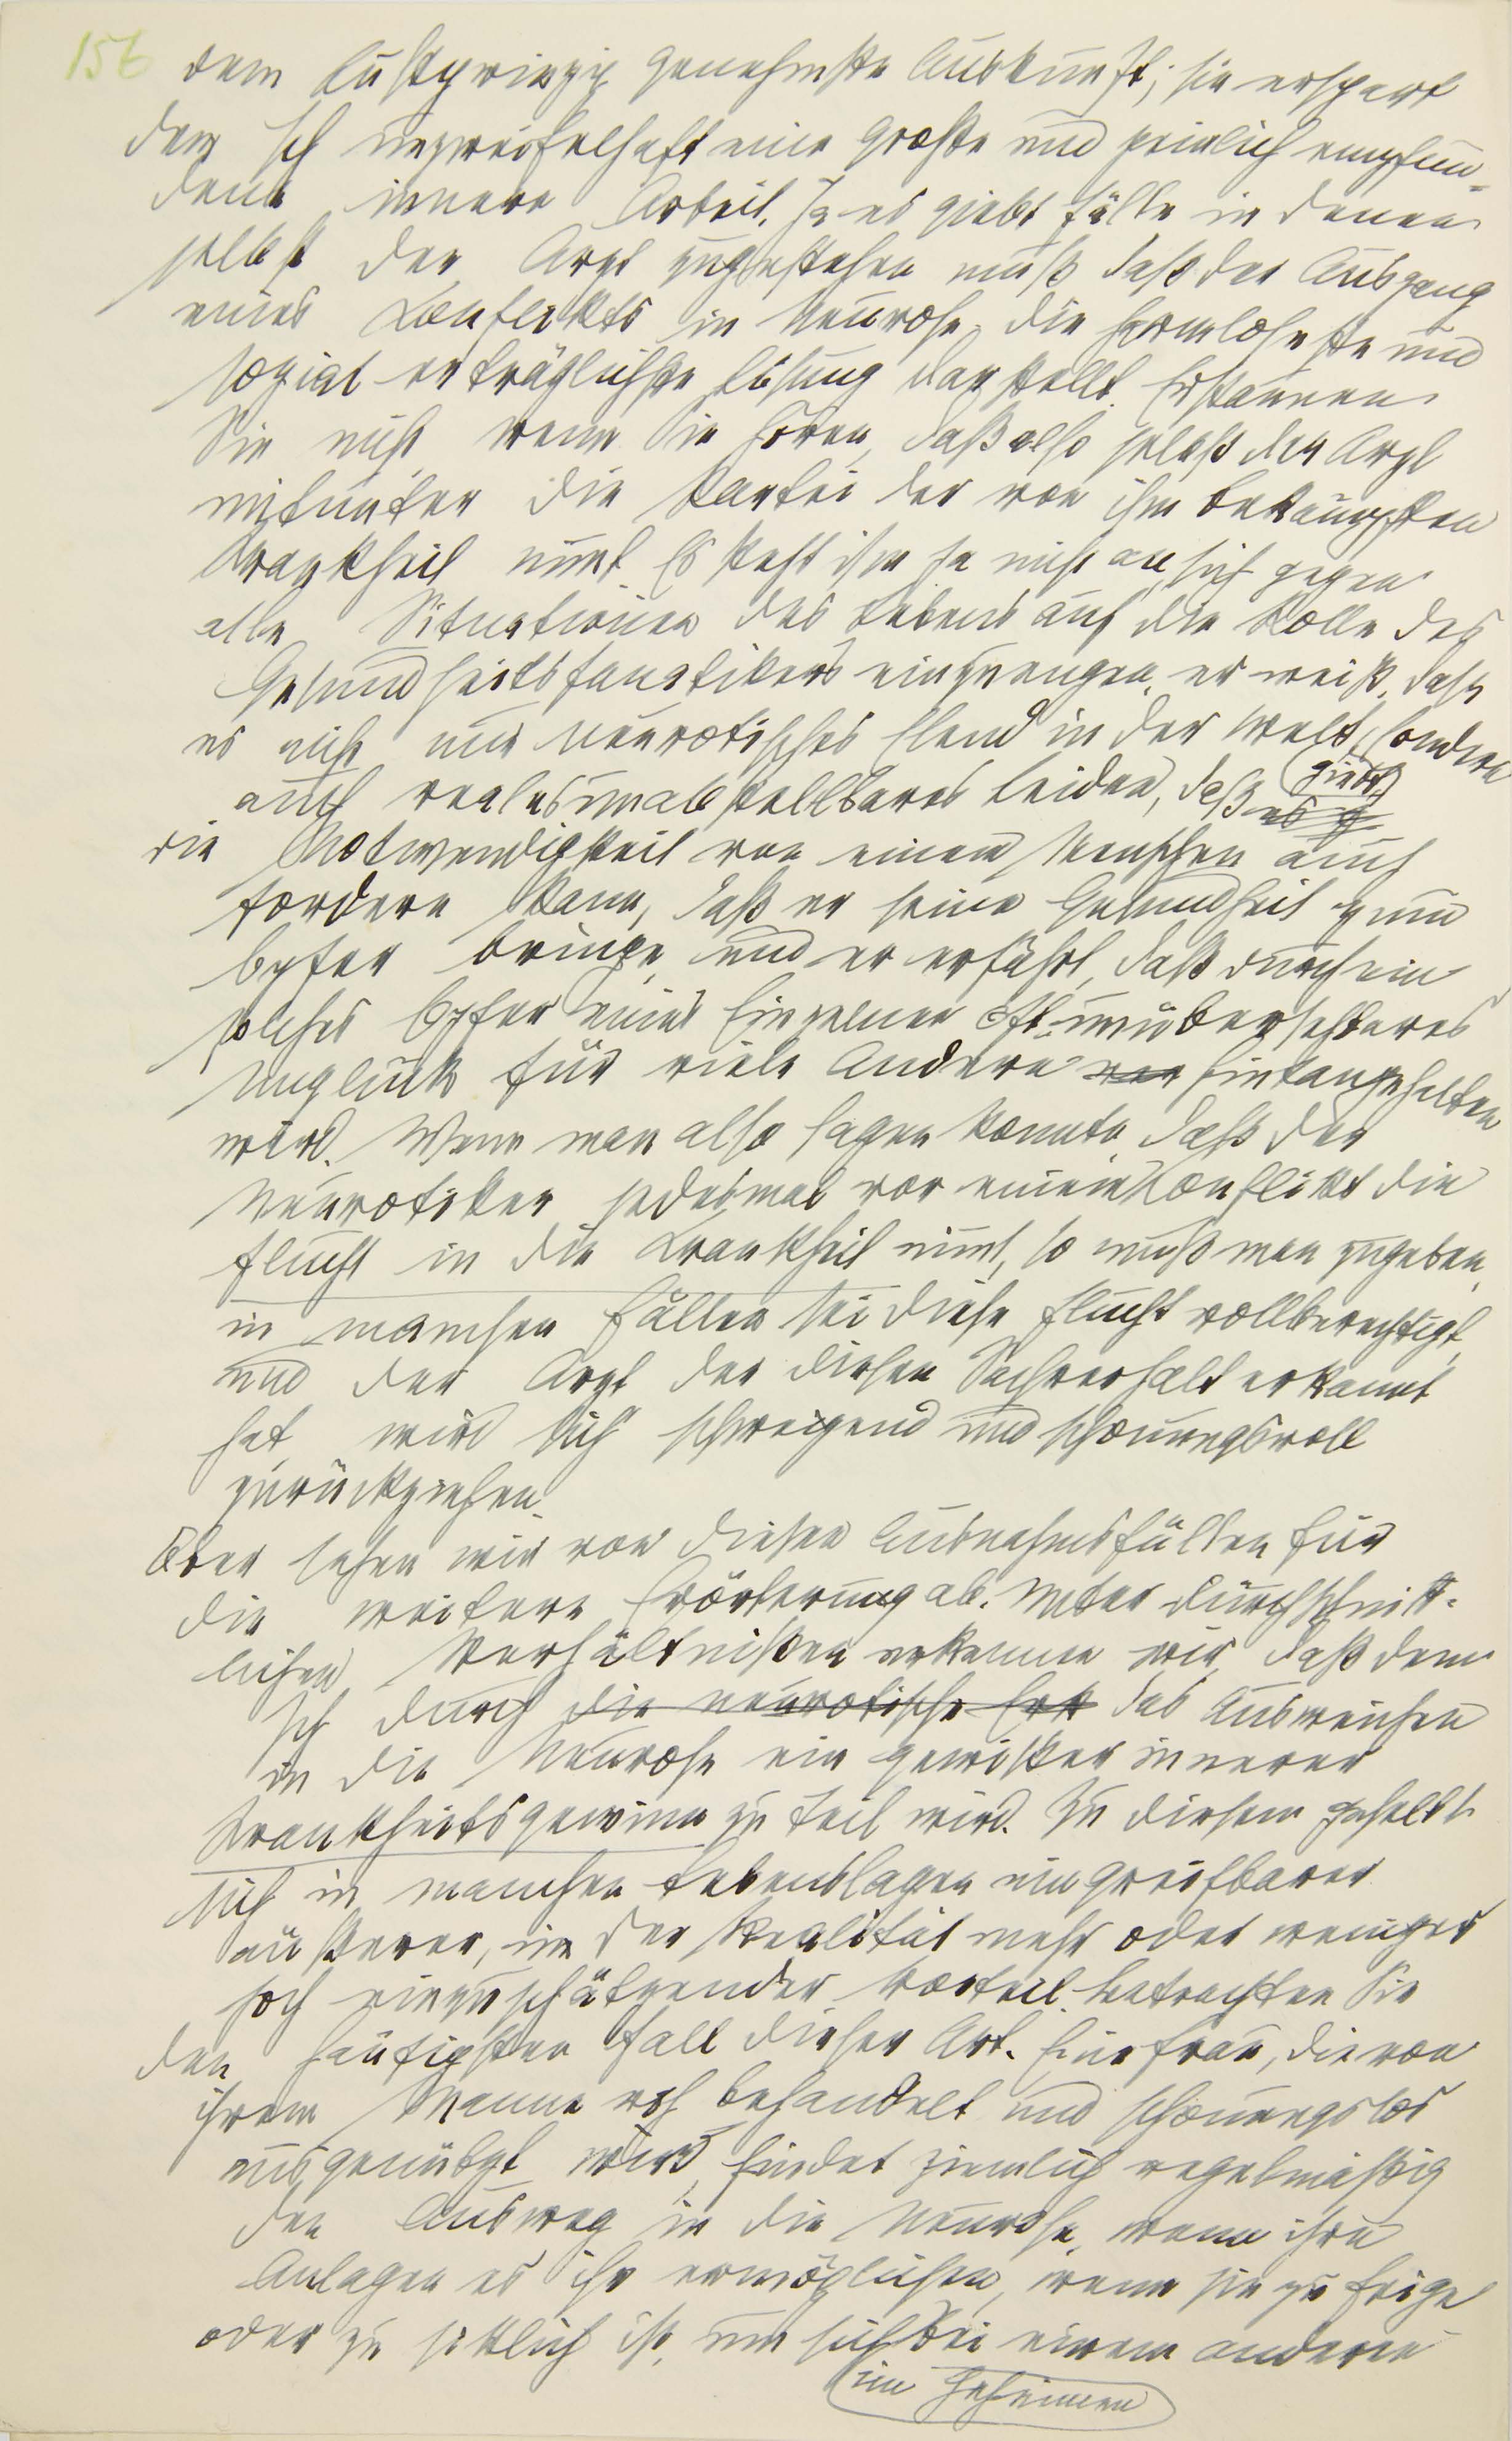 156
dem Lustprinzip genehmste Auskunft; sie erspart
dem Ich unzweifelhaft eine große und peinlich empfun-
dene innere Arbeit. Ja es giebt Fälle in denen
selbst der Arzt zugestehen muß daß der Ausgang
eines Konflikts in Neurose die harmloseste und
sozial erträglichste Lösung darstellt. Erstaunen
Sie nicht wenn Sie hören, daß also selbst der Arzt
mitunter die Partei der von ihm bekämpften
Krankheit nimt. Es steht ihm ja nicht an, sich gegen
alle Situationen des Lebens auf die Rolle des
Gesundheitsfanatikers einzuengen, er weiß, daß
es nicht nur neurotisches Elend in der Welt, sondern
giebt,
auch reales unabstellbares Leiden, daß es g
die Notwendigkeit von einem Menschen auch
fordern kann, daß er seine Gesundheit zum
Opfer bringe und er erfährt, daß durch ein
solches Opfer eines Einzelnen oft unübersehbares
Unglück für viele Andere von hintangehalten
wird. Wenn man also sagen konnte, daß der
Neurotiker jedesmal vor einem Konflikt die
Flucht in die Krankheit nimt, so muß man zugeben,
in manchen Fällen sei diese Flucht vollberechtigt,
und der Arzt der diesen Sachverhalt erkannt
hat, wird sich schweigend und schonungsvoll
zurückziehen.
Aber sehen wir von diesen Ausnahmsfällen für
die weitere Erörterung ab. Unter durchschnitt-
lichen Verhältnißen erkennen wir, daß dem
Ich durch die neurotische Erk das Ausweichen
in die Neurose ein gewißer innerer
Krankheitsgewinn zu Teil wird. Zu diesem gesellt
sich in manchen Lebenslagen ein greifbarer
äußerer, in der Realität mehr oder weniger
hoch einzuschätzender Vorteil. Betrachten Sie
den häufigsten Fall dieser Art. Eine Frau, die von
ihrem Manne roh behandelt und schonungslos
ausgenützt wird, findet ziemlich regelmäßig
den Ausweg in die Neurose, wenn ihre
Anlagen es ihr ermöglichen, wenn sie zu feige
oder zu sittlich ist, um sich bei einem anderen
im Geheimen